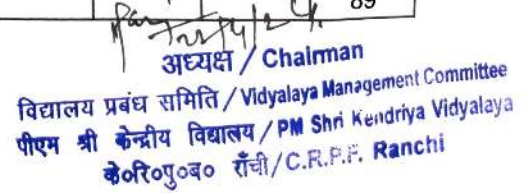 89
अध्यक्ष / Chairman
विद्यालय प्रबंध समिति / Vidyalaya Management Committee
पीएम श्री केन्द्रीय विद्यालय / PM Shri Kendriya Vidyalaya
के०रि०पु०ब० राँची/C.R.P.F. Ranchi